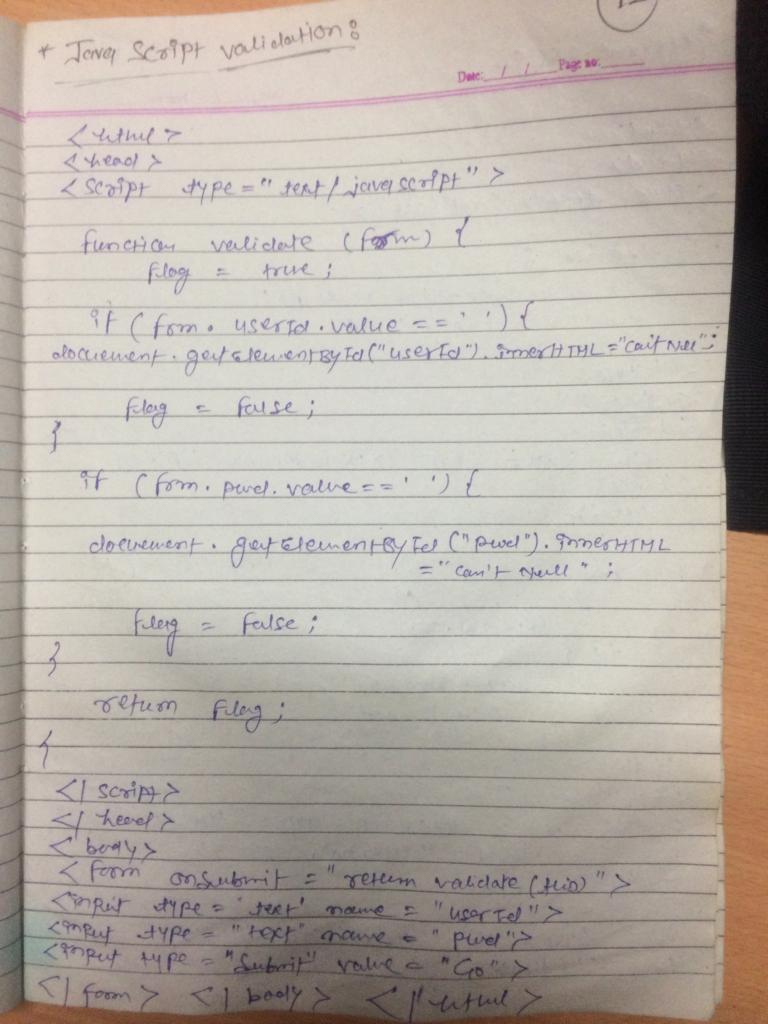 * Java Script validation:
Date: / / Page no:
<html>
<head>
<script type="text/javascript">
function validate (form) {
flag = true;
if (form. userId.value == ' ') {
document.getElementById("userId").innerHTML="can't Null";
flag = false;
}
if (form. pwd. value==' ') {
document. getElementById ("pwd"). innerHTML
="can't Null" ;
flag = false;
}
return flag;
{
</script>
</head>
<body>
<form onsubmit="return validate (this)">
<input type='text' name = "userId">
<input type = "text" name = "pwd">
<input type = "Submit" value = "Go">
</form> </body> </html>